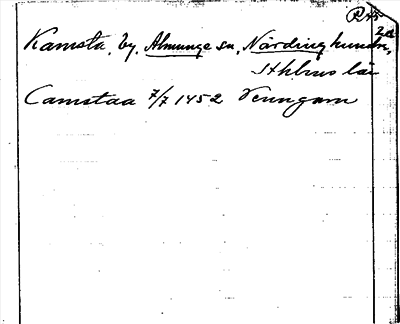 R 45
2a
Kamsta, by, Almunge sn, Närdinghundra,
Sthlms län
Camstaa 7/7 1452 Venngarn